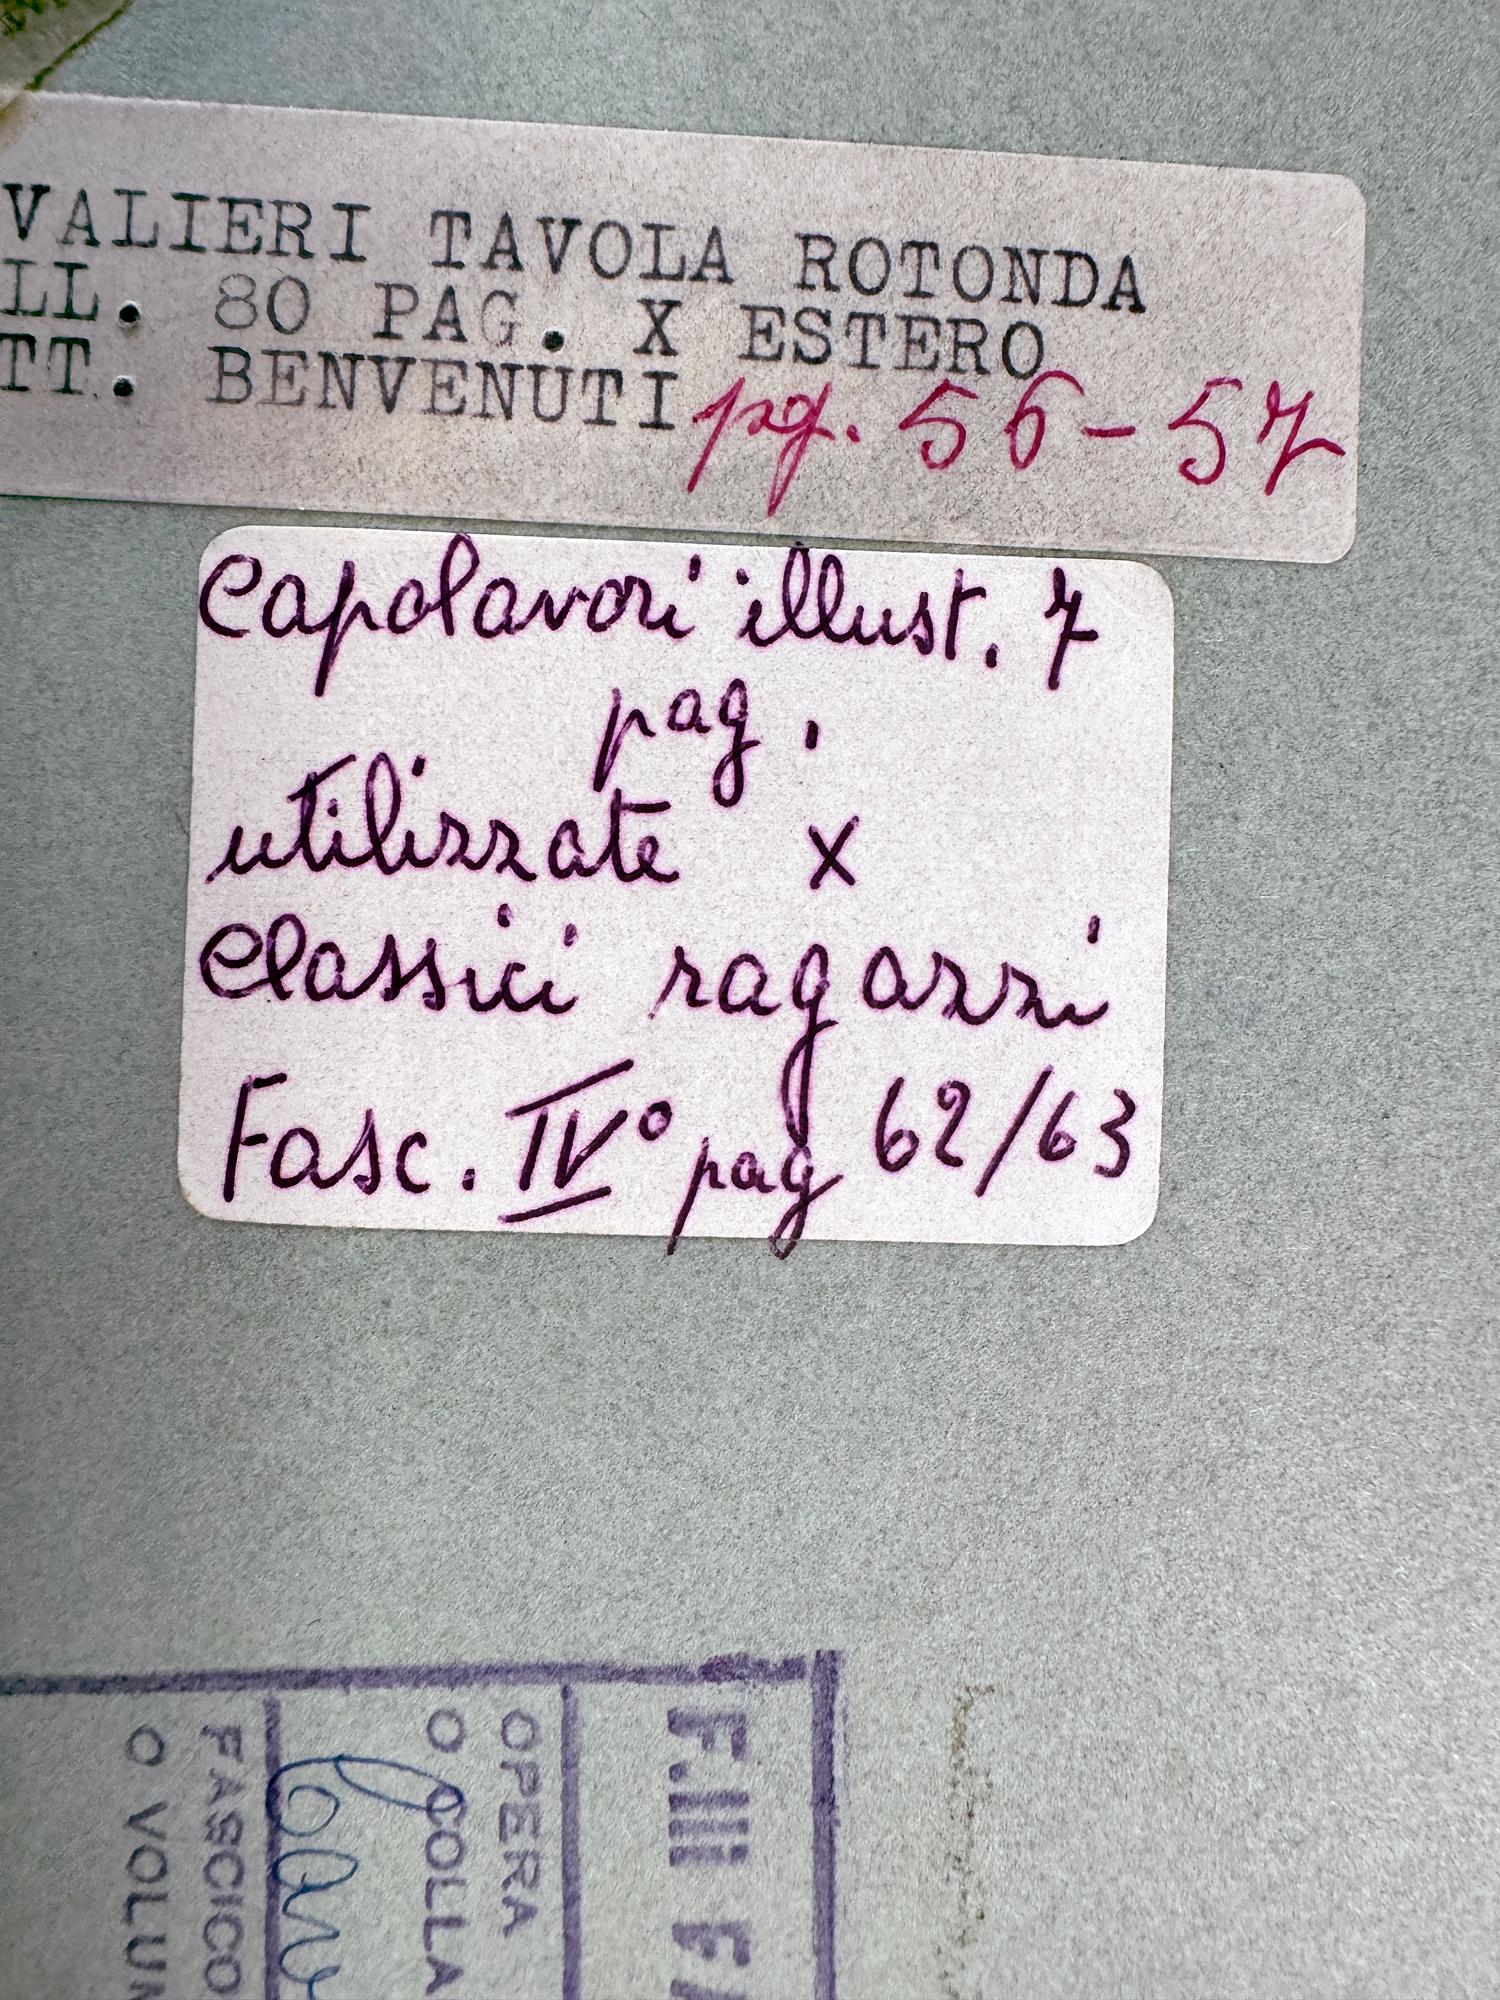 VALIERI TAVOLA ROTONDA
LL. 80 PAG. X ESTERO
TT. BENVENUTI pg. 56-57
Capolavori illust. 7
pag.
utilizzate x
Classici ragazzi
Fasc. IV° pag 62/63
F.lli F
OPERA
O COLLA
FASCICO
O VOLUM